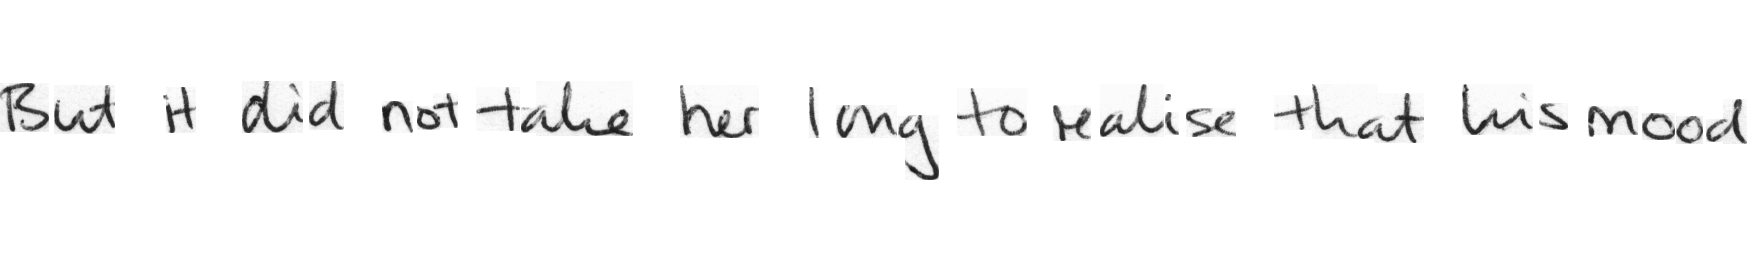 But it did not take her long to realise that his mood